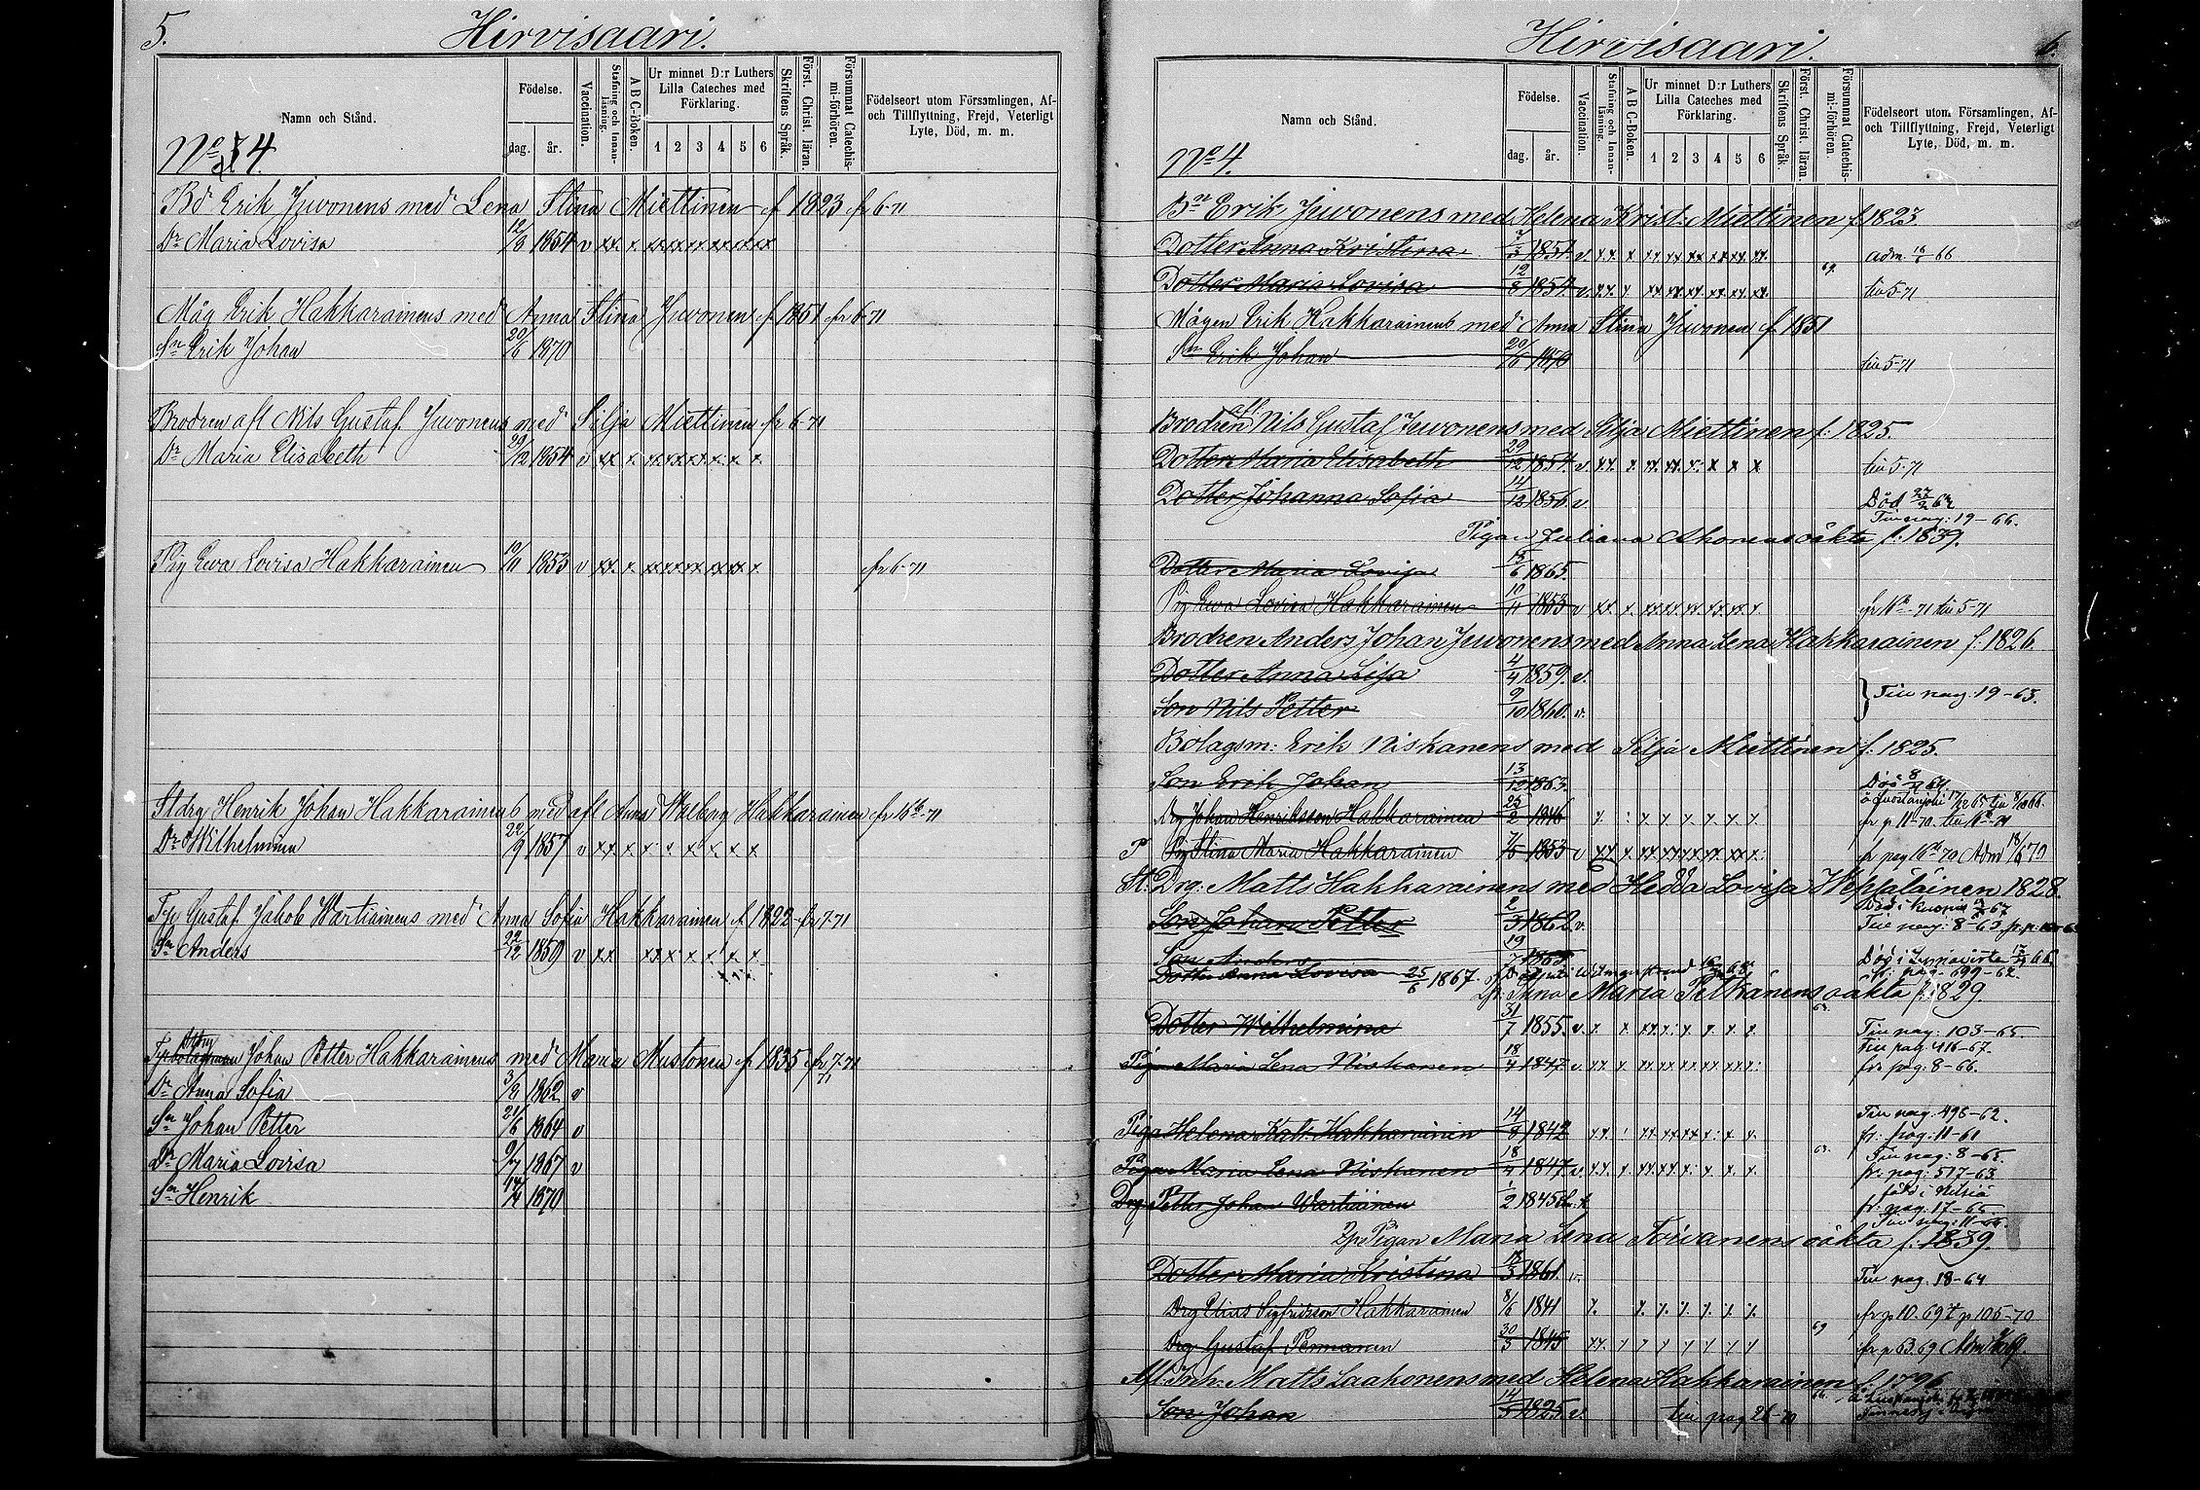 5.
Hirvisaari.
Namn och Stånd.
Födelse.
dag. år.
Vaccination.
Stafning och Innanläsning.
A B C-Boken.
Ur minnet D:r Luthers Lilla Cateches med Förklaring.
1 2 3 4 5 6
Skriftens Språk.
Först. Christ. läran.
Försummat Catechismi-förhören.
Födelseort utom Församlingen, Af- och Tillflyttning, Frejd, Veterligt Lyte, Död, m. m.
No 4
Bd Erik Juvonens med Lena Stina Miettinen f 1823 fr 6-71
Dr Maria Lovisa 12/8 1854 v xx x xx xx xx xx xx xx
Måg Erik Hakkarainens med Anna Stina Juvonen f. 1851 fr 6-71
Sn Erik Johan 20/6 1870
Brodren afl Nils Gustaf Juvonens med Silja Miettinen fr 6-71
Dr Maria Elisabeth 29/12 1854 v xx x xx xx xx x x x
Pig Ewa Lovisa Hakkarainen 10/11 1853 v xx x xx xx xx xx xx x fr 6-71
Stdrg Henrik Johan Hakkarainens med afl Anna Walborg Hakkarainen
Dr Wilhelmina 22/9 1857 v xx x x x x x x x
Gustaf Jakob Wartiainens med Anna Sofia Hakkarainen f. 1822 fr 7-71
Sn Anders 22/12 1859 v xx xx x x x x x
Johan Petter Hakkarainens med Maria Mustonen f. 1835 fr 7-71
Dr Anna Sofia 3/8 1862 v
Sn Johan Petter 21/6 1864 v
Dr Maria Lovisa 9/7 1867 v
Sn Henrik 1870
Hirvisaari.
6.
Namn och Stånd.
Födelse.
dag. år.
Vaccination.
Stafning och Innanläsning.
A B C-Boken.
Ur minnet D:r Luthers Lilla Cateches med Förklaring.
1 2 3 4 5 6
Skriftens Språk.
Först. Christ. läran.
Försummat Catechismi-förhören.
Födelseort utom Församlingen, Af- och Tillflyttning, Frejd, Veterligt Lyte, Död, m. m.
No 4.
Erik Juvonens med Helena Krist: Miettinen f. 1823.
Dotter Anna Kristina 1851 v. xx x xx xx xx xx xx xx adm. 66
Dotter Maria Lovisa 12/8 1854 v. xx x xx xx xx x x xx 69. till 5-71
Mågen Erik Hakkarainens med Anna Stina Juvonen f. 1851
Sn Erik Johan 20/6 1870 till 5-71
Brodren afl. Nils Gustaf Juvonens med Silja Miettinen f. 1825.
Dotter Maria Elisabeth 29/12 1854 v. xx x xx xx x x x x till 5-71
Dotter Johanna Sofia 14/12 1856 v. Död
Till pag: 19-66.
Pigan Juliana Ahonens oäkta f. 1839.
Dotter Maria Lovisa 15/6 1865.
Pig Ewa Lovisa Hakkarainen 10/11 1853 v xx. x. xx xx xx xx xx x till 5-71
Brodren Anders Johan Juvonens med Anna Lena Hakkarainen f. 1826.
Dotter Anna Lisa 4/4 1859. v.
Son Nils Petter 9/10 1860. v. } Till pag: 19-63.
Bolagsm: Erik Niskanens med Silja Miettinen f. 1825.
Son Erik Johan 13/12 1863. Död 64
Drg Johan Henriksson Hakkarainen 25/2 1846 fr p 11-70
P Pig Stina Maria Hakkarainen 1853 v xx x xx xx xx xx xx x
St: Drg: Matts Hakkarainens med Hedda Lovisa 1828.
Son Johan Petter 2/3 1862 v. Till pag: 8-63
Son Anders
Dotter Anna Lovisa 25/6 1867.
Anna Maria Pitkänens oäkta f. 1829.
Dotter Wilhelmina 31/7 1855 v. Till pag: 103-65.
Till pag. 416-67.
Piga Maria Lena Niskanen 18/4 1847 v. xx x xx xx xx xx xx x från pag: 8-66.
Till pag. 498-62.
Piga Helena Kat: Hakkarainen 14/8 1842 fr: pag: 11-61
63. Till pag: 8-65.
Piga Maria Lena Niskanen 18/4 1847 v. fr: pag: 517-63.
född i Nilsiä
Drg Petter Johan Wartiainen 1/2 1845 fr: pag. 17-65.
Pigan Maria Lena Toivanens oäkta f: 1839.
Dotter Maria Kristina 1861 v. Till pag. 18-64
Drg Elias Sigfridsson Hakkarainen 8/6 1841 fr p 10. 69 t p 105-70
Drg Gustaf 30/3 1845 69 fr p 63. 69
Afl. Inh: Matts Laakonens med Helena Hakkarainen f. 1796
Son Johan 14/5 1825 v. till pag 26-70